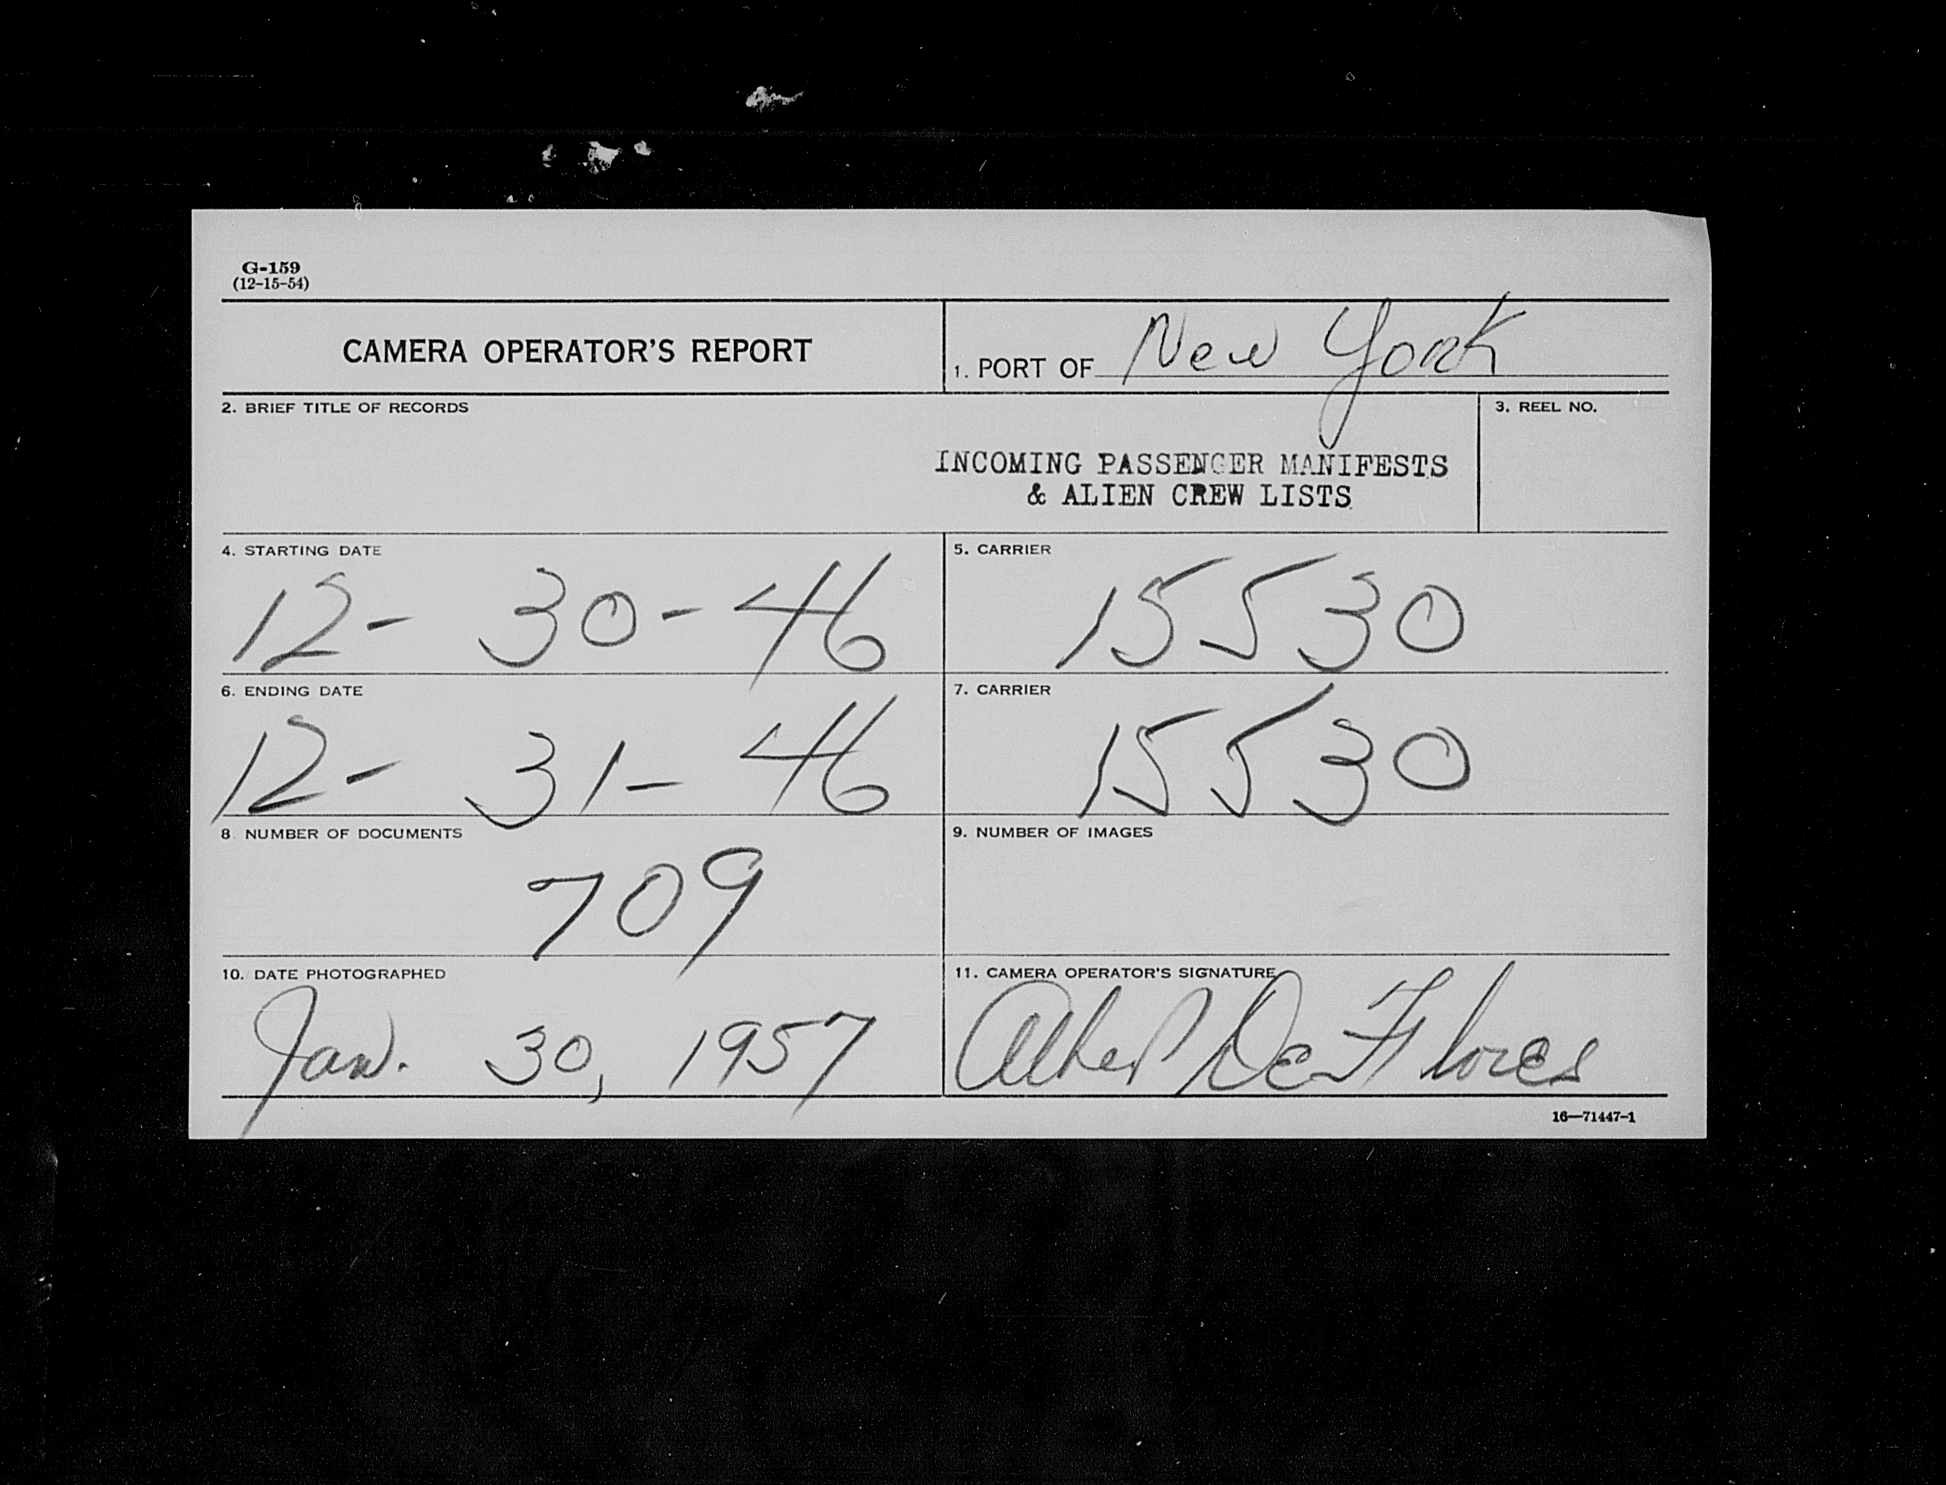 G-159
(12-15-54)
CAMERA OPERATOR'S REPORT
1. PORT OF New York
2. BRIEF TITLE OF RECORDS
3. REEL NO.
INCOMING PASSENGER MANIFESTS
& ALIEN CREW LISTS
4. STARTING DATE
12- 30-46
5. CARRIER
15530
6. ENDING DATE
12- 31-46
7. CARRIER
15530
8. NUMBER OF DOCUMENTS
709
9. NUMBER OF IMAGES
10. DATE PHOTOGRAPHED
Jan. 30, 1957
11. CAMERA OPERATOR'S SIGNATURE
Albert De Flores
16—71447-1